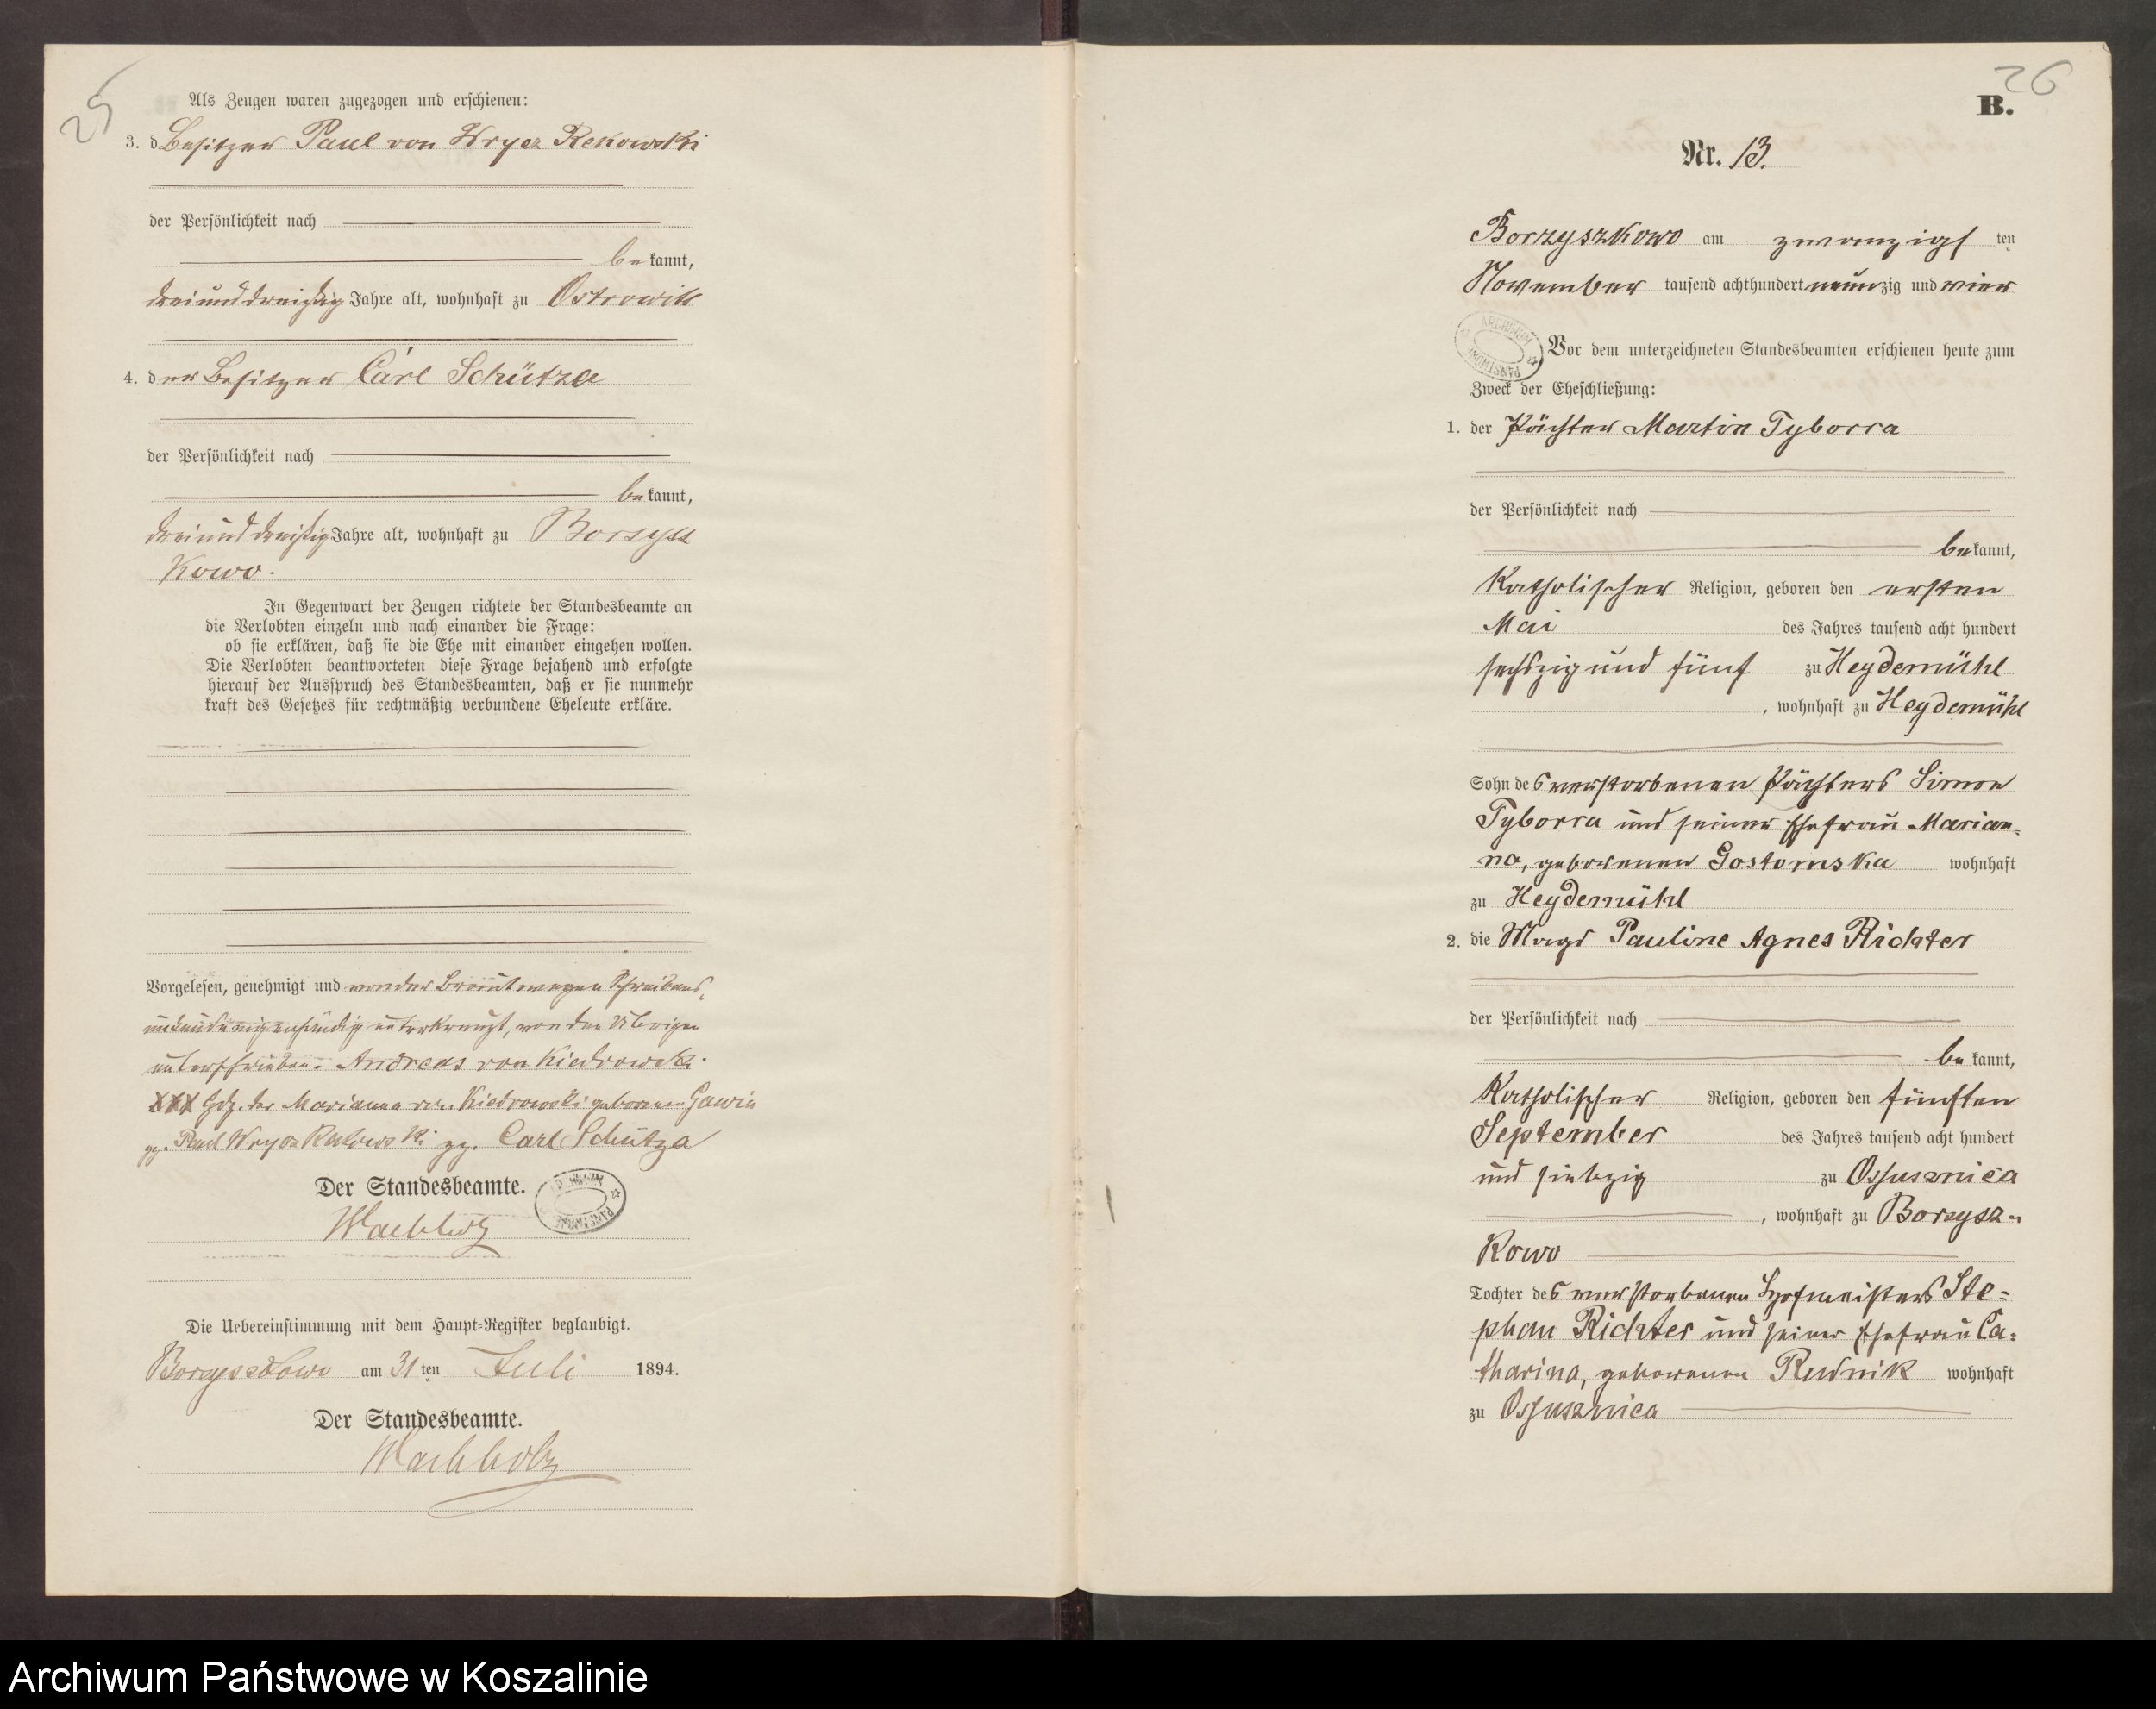 25
Als Zeugen waren zugezogen und erschienen:
3. d Besitzer Paul von Wrycz Rekowski
der Persönlichkeit nach
be kannt,
dreiunddreißig Jahre alt, wohnhaft zu Ostrowitt
4. der Besitzer Carl Schütza
der Persönlichkeit nach
be kannt,
dreiunddreißig Jahre alt, wohnhaft zu Borzysz
kowo.
In Gegenwart der Zeugen richtete der Standesbeamte an
die Verlobten einzeln und nach einander die Frage:
ob sie erklären, daß sie die Ehe mit einander eingehen wollen.
Die Verlobten beantworteten diese Frage bejahend und erfolgte
hierauf der Ausspruch des Standesbeamten, daß er sie nunmehr
kraft des Gesetzes für rechtmäßig verbundene Eheleute erkläre.
Vorgelesen, genehmigt und von der Braut wegen Schreibens-
unkunde eigenhändig unterkreuzt, von den Übrigen
unterschrieben. Andreas von Kiedrowski.
XXX Hdz. der Marianna von Kiedrowski geborenen Gawin
gz. Paul Wrycz Rekowski gz. Carl Schütza
Der Standesbeamte.
Wachholz
Die Uebereinstimmung mit dem Haupt-Register beglaubigt.
Borzyszkowo am 31 ten Juli 1894.
Der Standesbeamte.
Wachholz
26
B.
Nr. 13.
Borzyszkowo am zwanzigs ten
November tausend achthundert neun zig und vier
ARCHIWUM PAŃSTWOWE
Vor dem unterzeichneten Standesbeamten erschienen heute zum
Zweck der Eheschließung:
1. der Pächter Martin Tyborra
der Persönlichkeit nach
be kannt,
Katholischer Religion, geboren den ersten
Mai des Jahres tausend acht hundert
sechszig und fünf zu Heydemühl
, wohnhaft zu Heydemühl
Sohn des verstorbenen Pächters Simon
Tyborra und seiner Ehefrau Marian-
na, geborenen Gostomska wohnhaft
zu Heydemühl
2. die Magd Pauline Agnes Richter
der Persönlichkeit nach
be kannt,
Katholischer Religion, geboren den fünften
September des Jahres tausend acht hundert
und siebzig zu Ossusznica
, wohnhaft zu Borzysz-
kowo
Tochter des verstorbenen Hofmeisters Ste-
phan Richter und seiner Ehefrau Ca-
tharina, geborenen Rudnik wohnhaft
zu Ossusznica
Archiwum Państwowe w Koszalinie